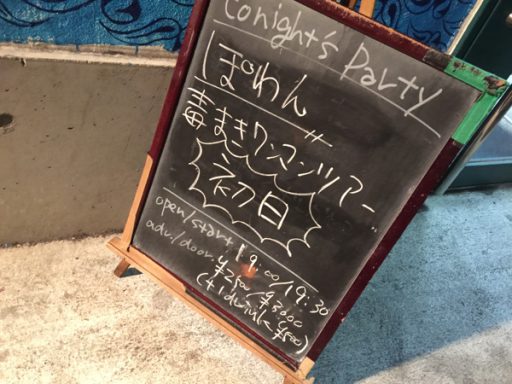 Tonight's Party
ぽわん
毒まきワンマンツアー
初日
open/start 19:00/19:30
adv./door. ¥2500/¥3000
(+1drink ¥500)